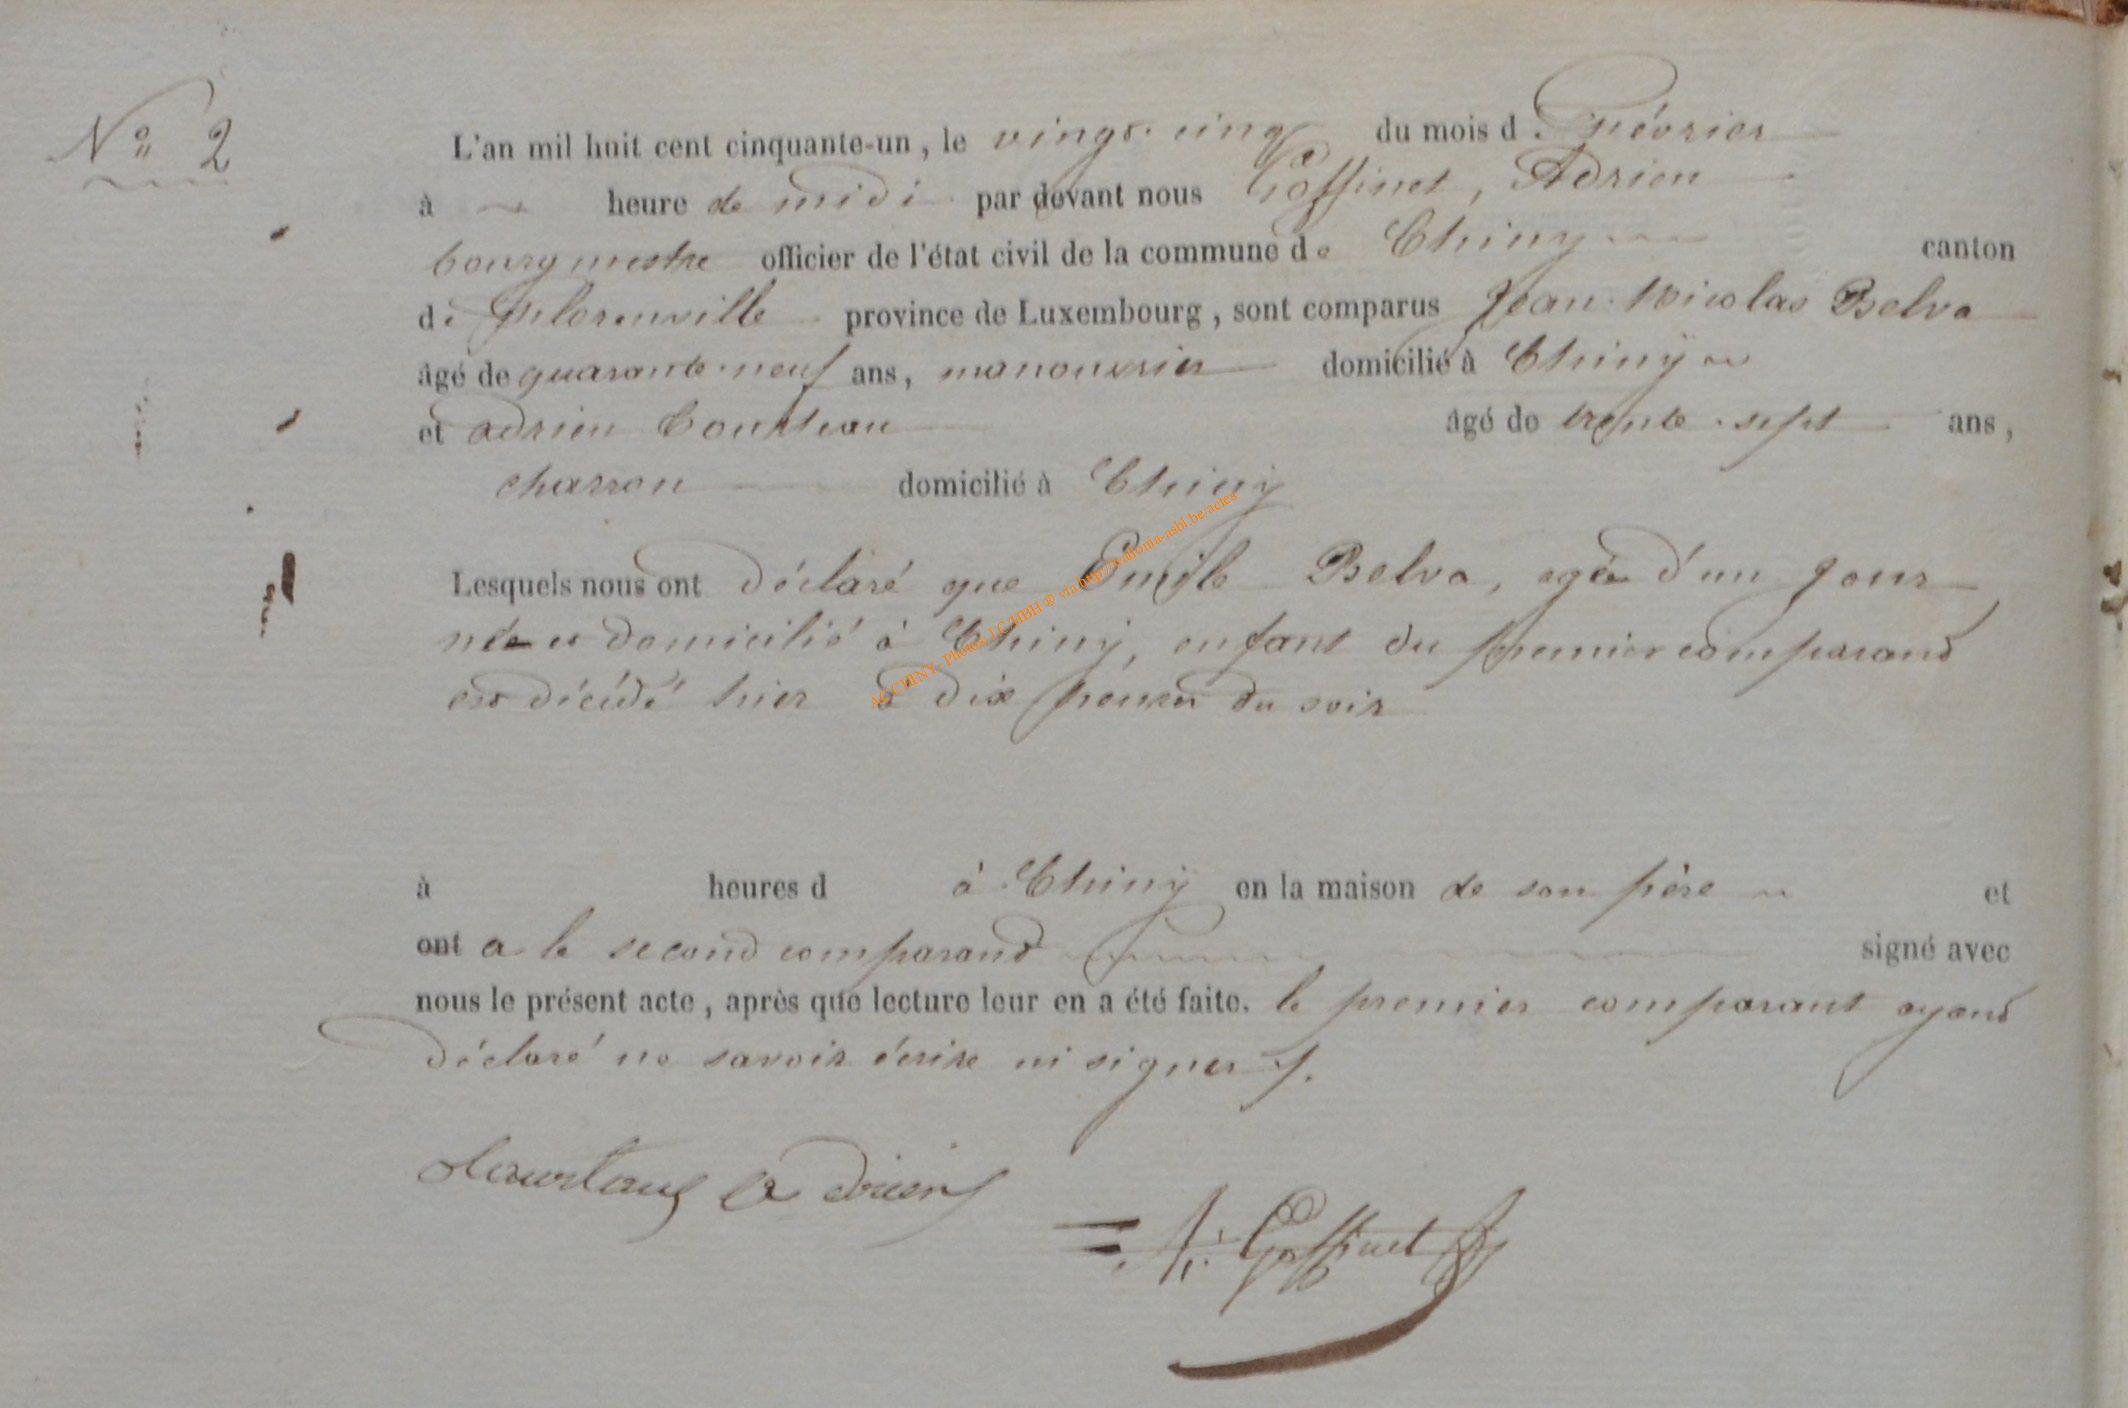 N° 2
L'an mil huit cent cinquante-un, le vingt-cinq du mois d février
à heure de midi par devant nous Goffinet, Adrien
bourgmestre officier de l'état civil de la commune de Chiny canton
de florenville province de Luxembourg, sont comparus Jean-Nicolas Belva
âgé de quarante-neuf ans, manouvrier domicilié à Chiny
et adrien Courteau âgé de trente-sept ans,
charron domicilié à Chiny
Lesquels nous ont déclaré que Emile Belva, agé d'un jour
né et domicilié à Chiny, enfant du premier comparand
est décédé hier à dix heures du soir
AC CHINY- Photos LC/HBH ® via http://wallonia-asbl.be/actes
à heures d à Chiny en la maison de son père et
ont a le second comparand signé avec
nous le présent acte, après que lecture leur en a été faite. le premier comparant ayand
déclaré ne savoir écrire ni signer /.
Courtaux adrien
A: Goffinet